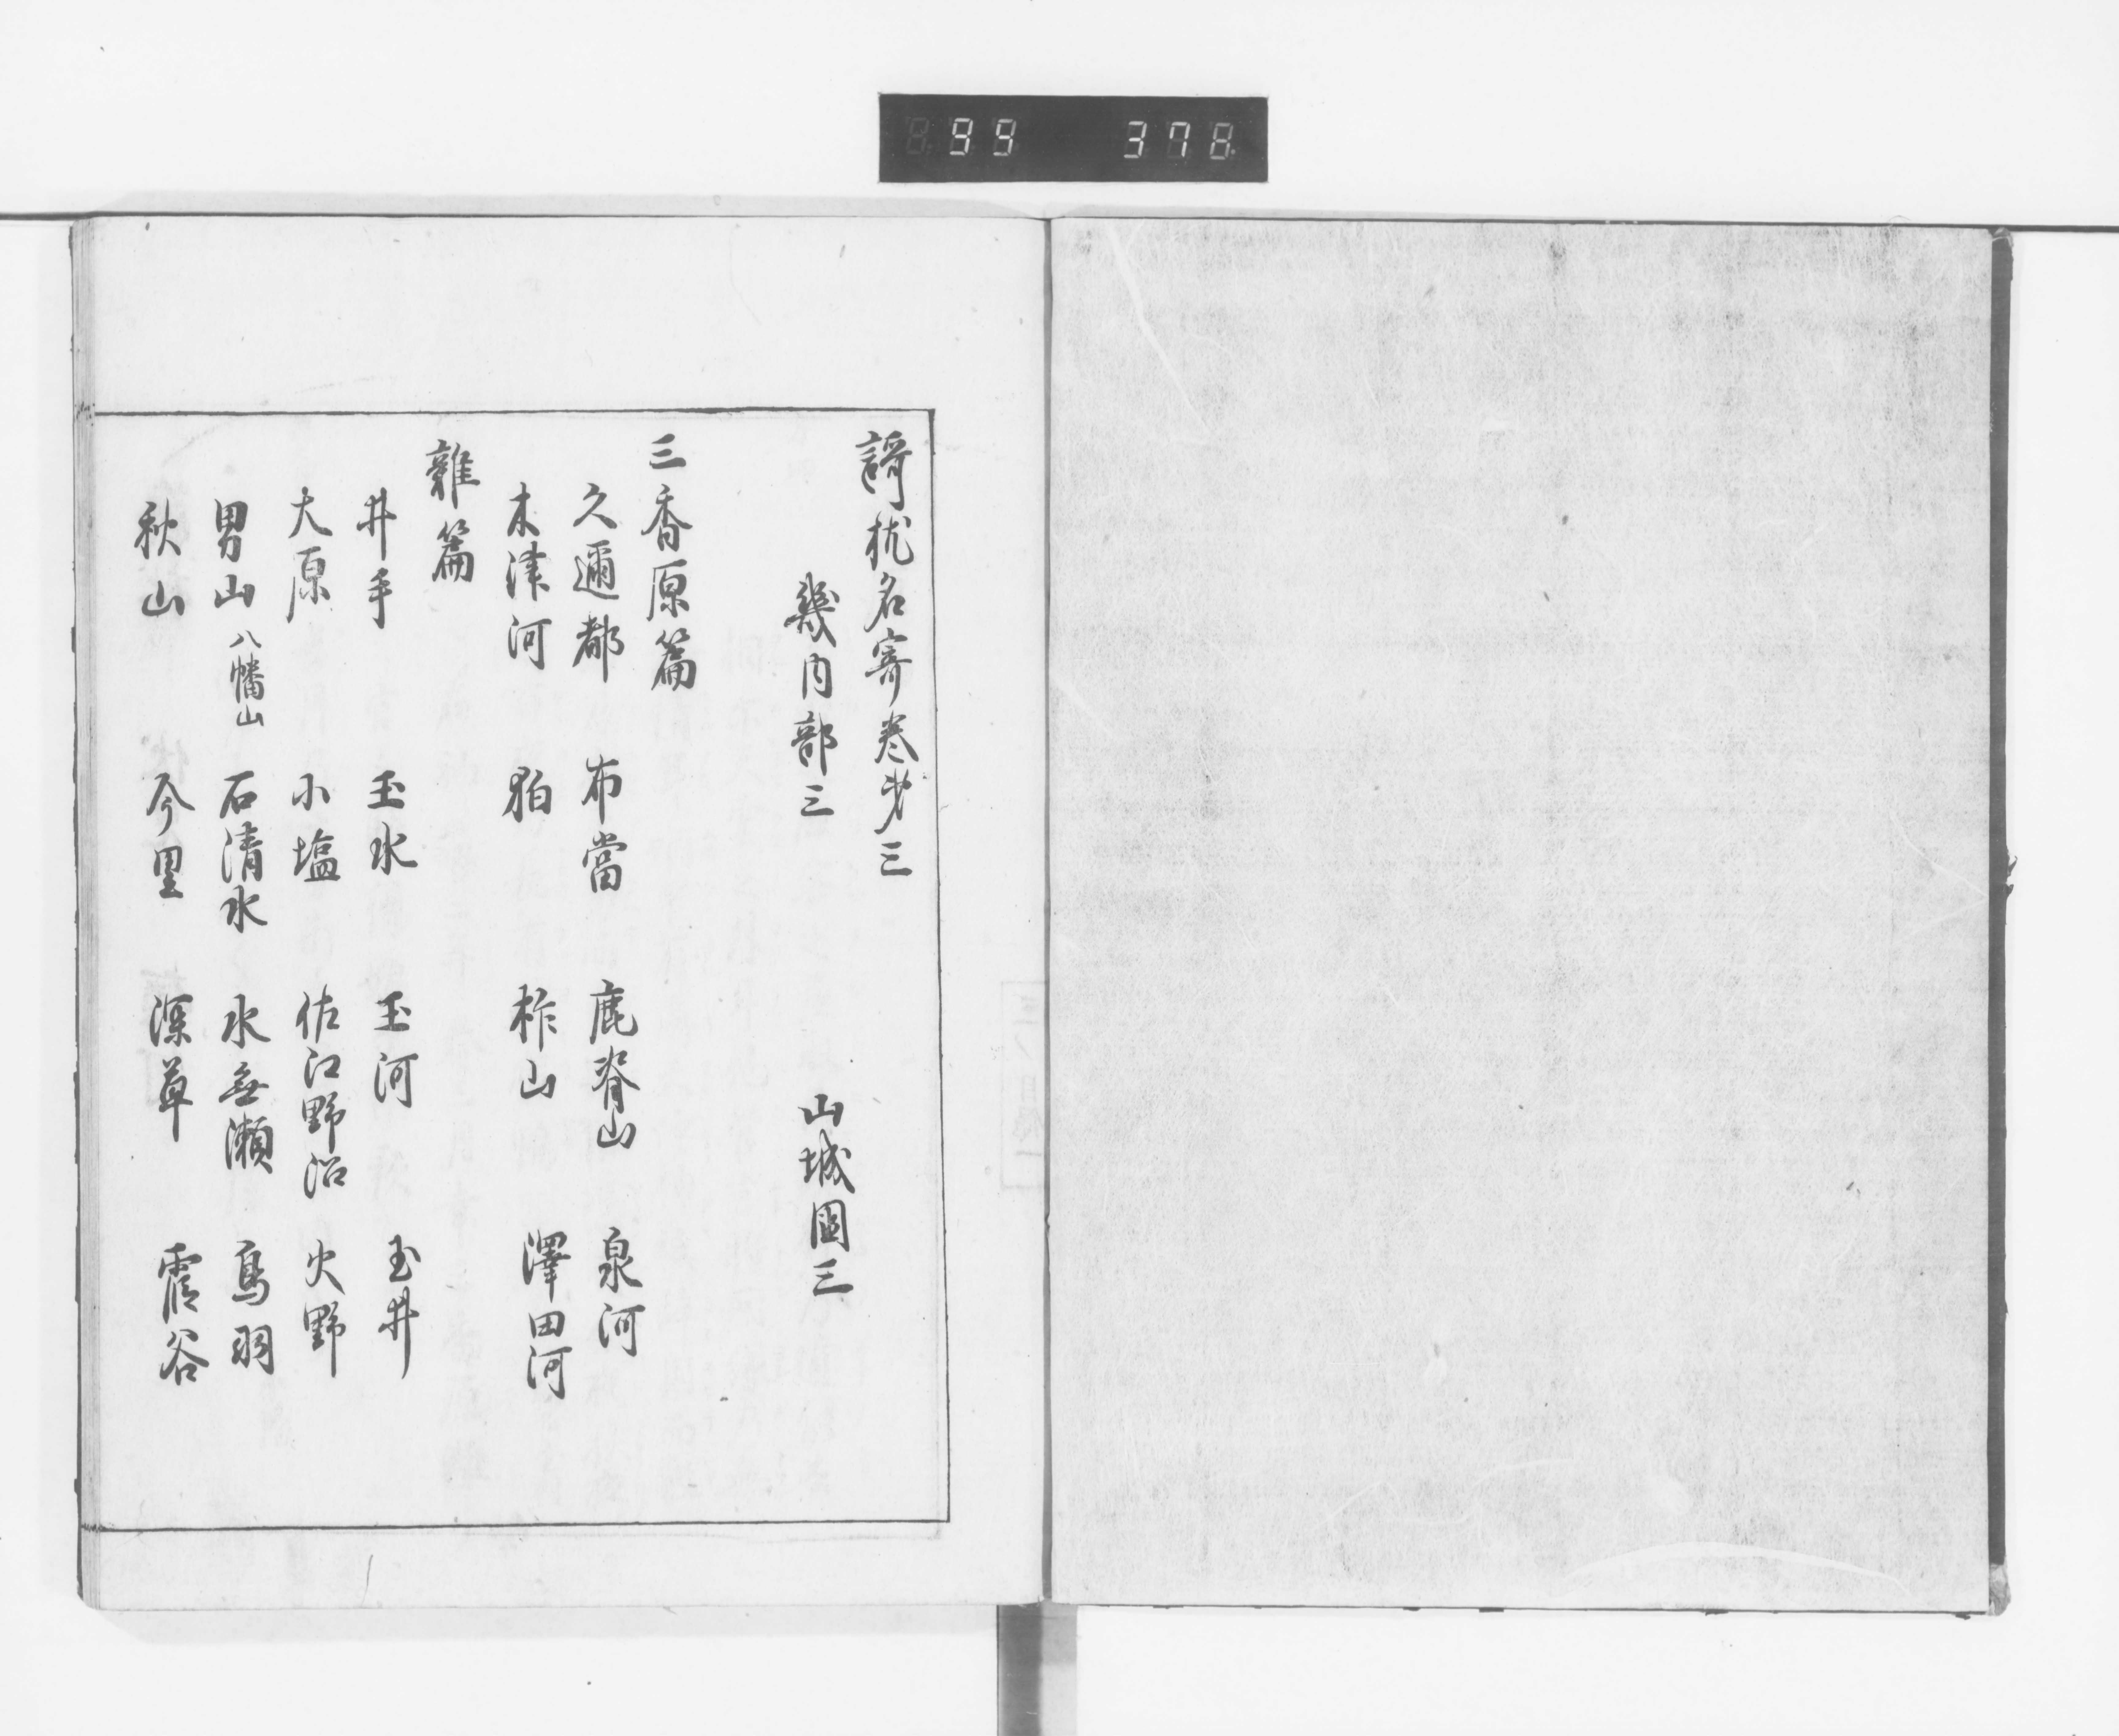 99 378
謌枕名寄巻第三
畿内部三 山城國三
三香原篇
久邇都 布當 鹿脊山 泉河
木津河 狛 柞山 澤田河
雜篇
井手 玉水 玉河 玉井
大原 小塩 佐江野沼 大野
男山 八幡山 石清水 水無瀬 鳥羽
秋山 今里 深草 霞谷